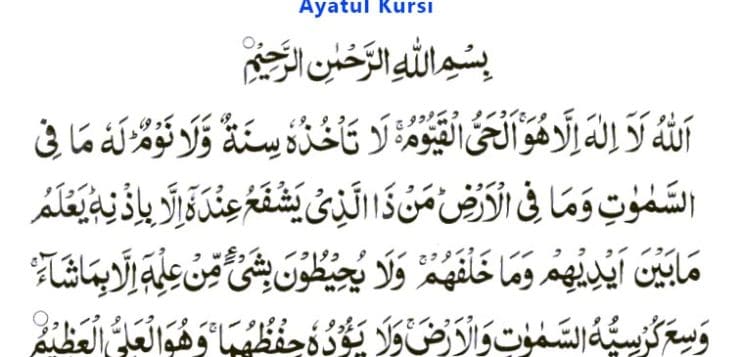 Ayatul Kursi
بِسْمِ اللّٰهِ الرَّحْمٰنِ الرَّحِيْمِ
اَللّٰهُ لَآ اِلٰهَ اِلَّا هُوَۚ اَلْحَيُّ الْقَيُّوْمُ ۚ لَا تَاْخُذُهٗ سِنَةٌ وَّلَا نَوْمٌؕ لَهٗ مَا فِى
السَّمٰوٰتِ وَمَا فِى الْاَرْضِؕ مَنْ ذَا الَّذِىْ يَشْفَعُ عِنْدَهٗٓ اِلَّا بِاِذْنِهٖؕ يَعْلَمُ
مَابَيْنَ اَيْدِيْهِمْ وَمَا خَلْفَهُمْۚ وَلَا يُحِيْطُوْنَ بِشَىْءٍ مِّنْ عِلْمِهٖٓ اِلَّا بِمَاشَآءَۚ
وَسِعَ كُرْسِيُّهُ السَّمٰوٰتِ وَالْاَرْضَۚ وَلَا يَـُٔوْدُهٗ حِفْظُهُمَاۚ وَهُوَ الْعَلِىُّ الْعَظِيْمُ